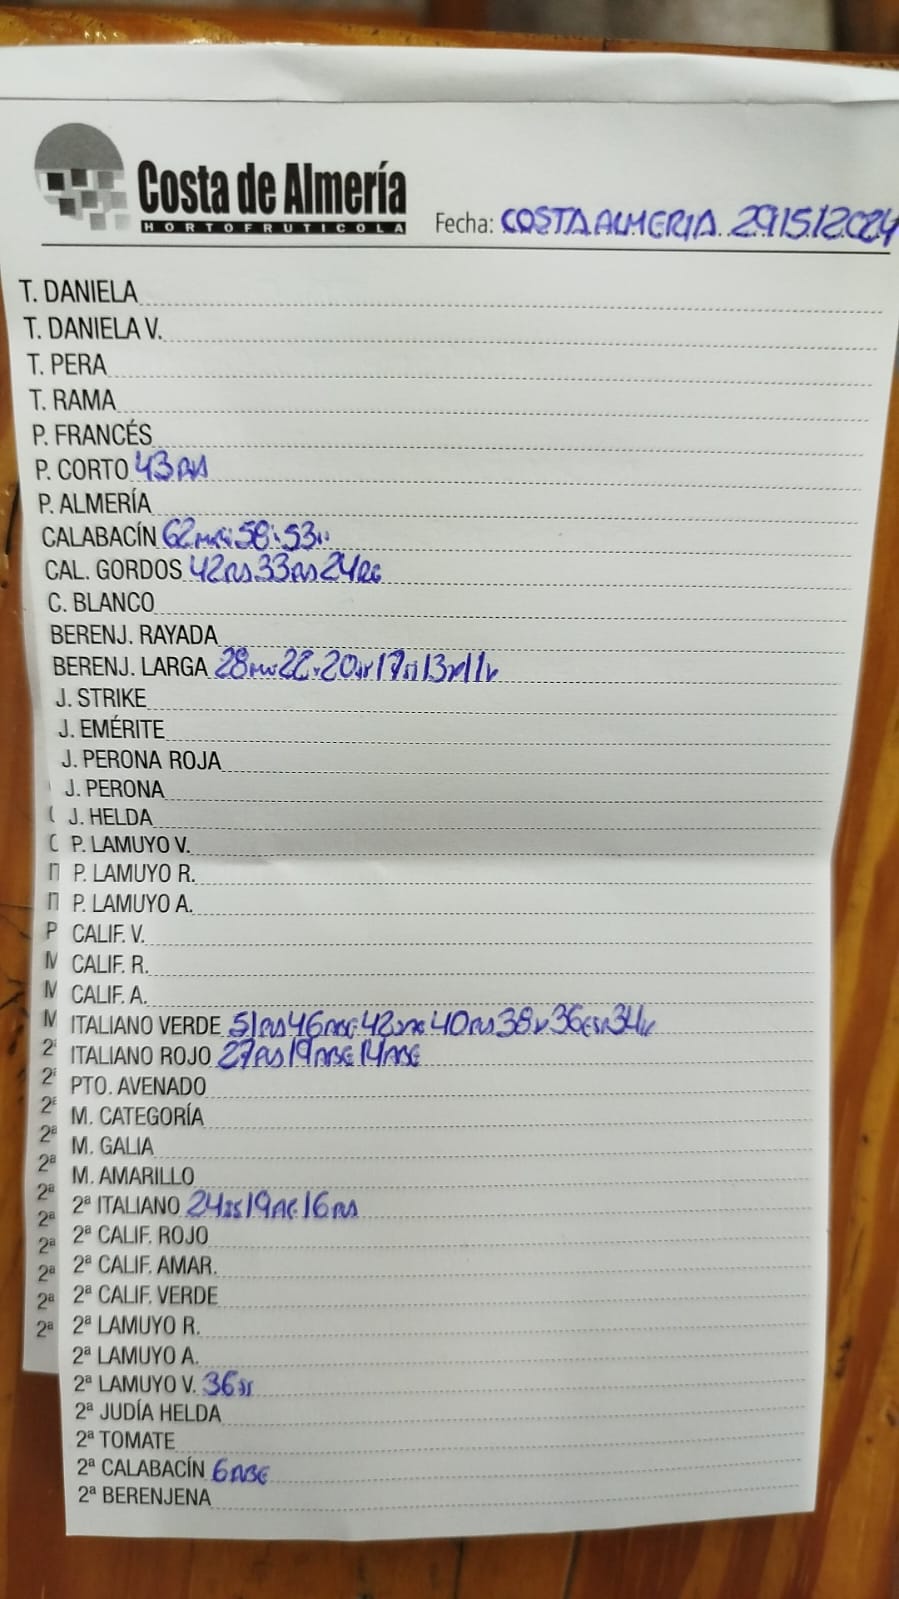 Costa de Almería
HORTOFRUTICOLA
Fecha: COSTA ALMERIA 29/5/2024
T. DANIELA
T. DANIELA V.
T. PERA
T. RAMA
P. FRANCÉS
P. CORTO 43
P. ALMERÍA
CALABACÍN 62 58 53
CAL. GORDOS 42 33 24
C. BLANCO
BERENJ. RAYADA
BERENJ. LARGA 28 22 20 17 13 11
J. STRIKE
J. EMÉRITE
J. PERONA ROJA
J. PERONA
J. HELDA
P. LAMUYO V.
P. LAMUYO R.
P. LAMUYO A.
CALIF. V.
CALIF. R.
CALIF. A.
ITALIANO VERDE 51 46 42 40 38 36 34
ITALIANO ROJO 27 19 14
PTO. AVENADO
M. CATEGORÍA
M. GALIA
M. AMARILLO
2ª ITALIANO 24 19 16
2ª CALIF. ROJO
2ª CALIF. AMAR.
2ª CALIF. VERDE
2ª LAMUYO R.
2ª LAMUYO A.
2ª LAMUYO V. 36
2ª JUDÍA HELDA
2ª TOMATE
2ª CALABACÍN 6
2ª BERENJENA